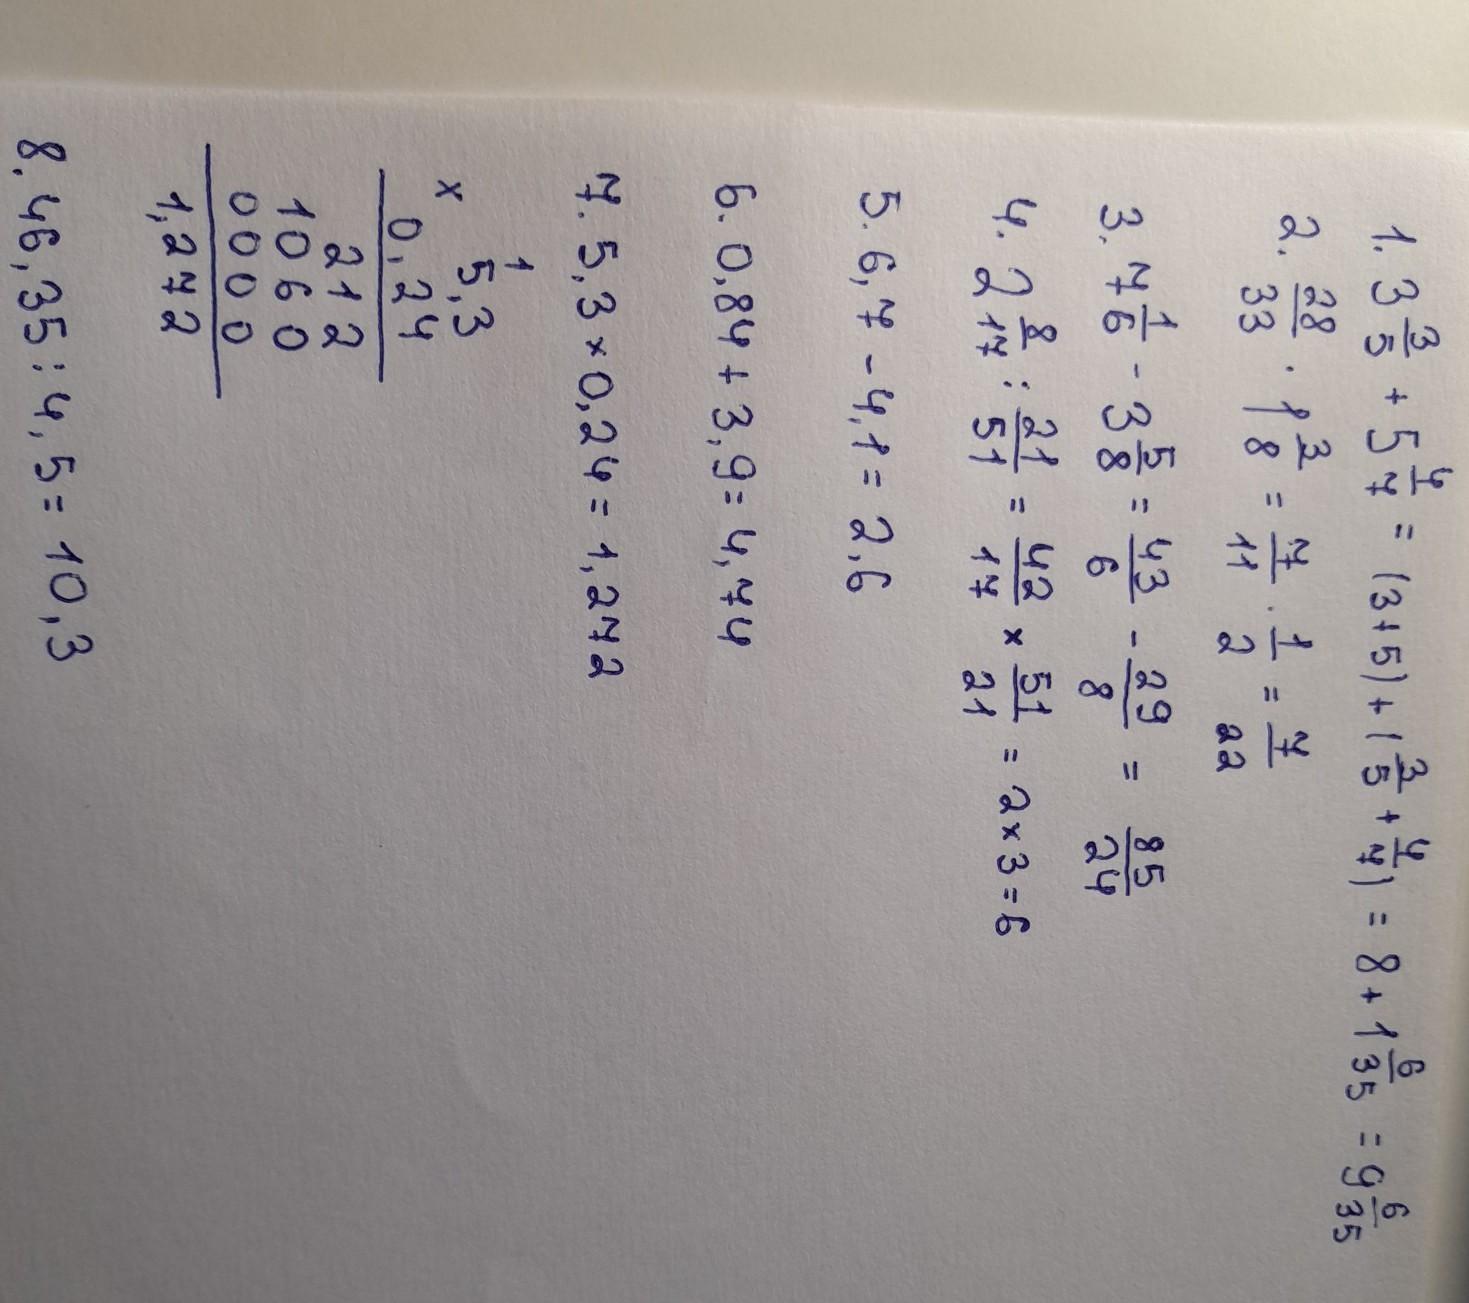 1. 3 3/5 + 5 4/7 = (3+5)+(3/5+4/7) = 8+1 6/35 = 9 6/35
2. 28/33 · 1 3/8 = 7/11 · 1/2 = 7/22
3. 7 1/6 - 3 5/8 = 43/6 - 29/8 = 85/24
4. 2 8/17 : 21/51 = 42/17 × 51/21 = 2×3=6
5. 6,7-4,1= 2,6
6. 0,84+3,9=4,74
7. 5,3×0,24=1,272
1
5,3
×
0,24
212
1060
0000
1,272
8. 46,35:4,5= 10,3